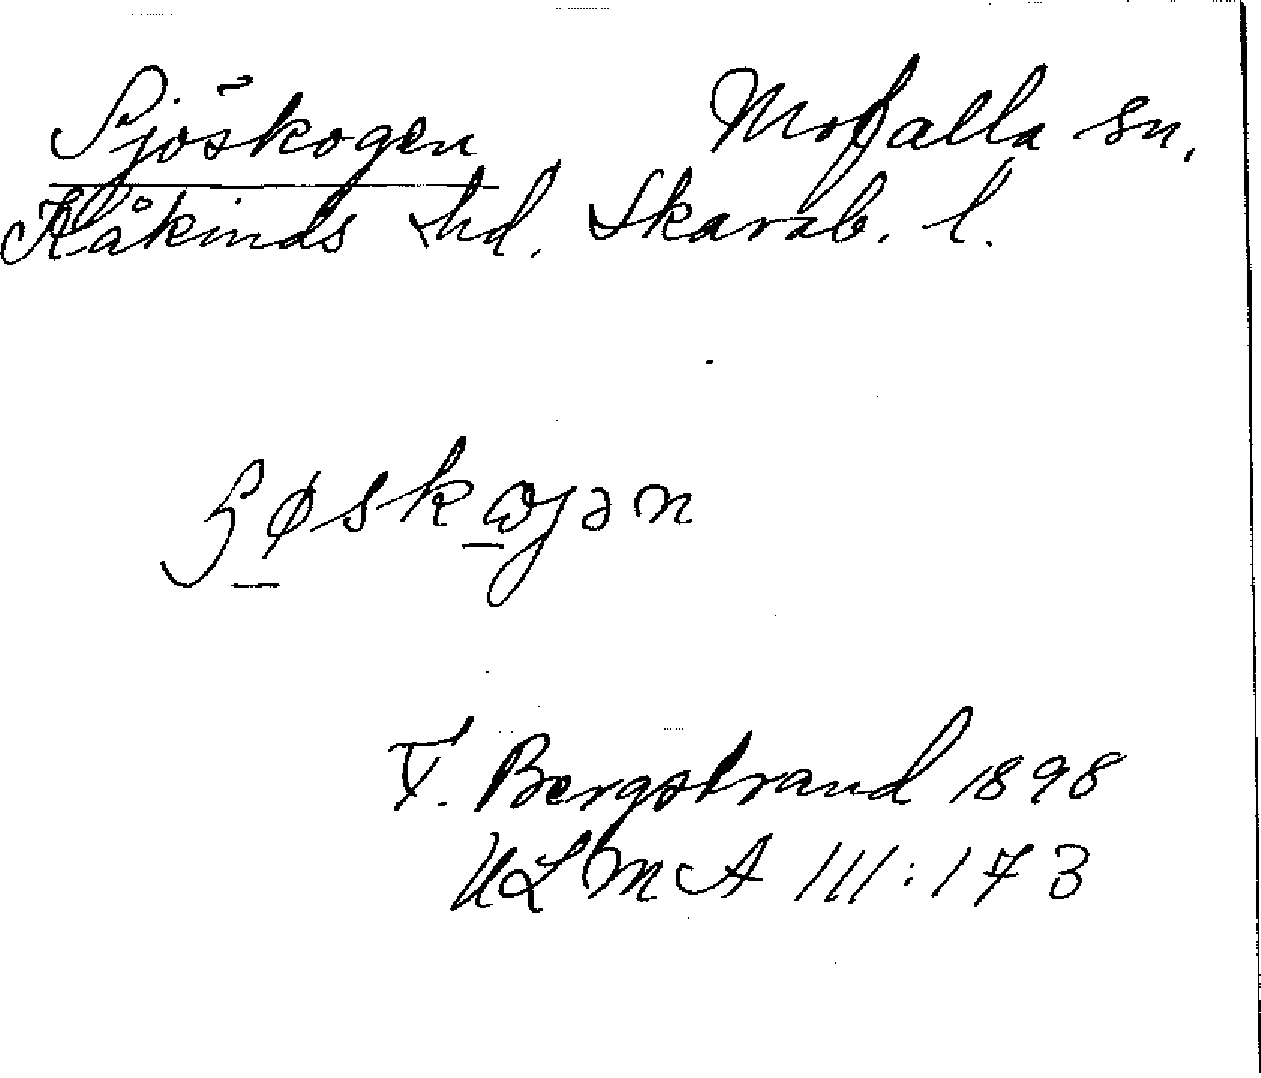 Sjöskogen Mofalla sn.
Kåkinds hd. Skarab. l.
ʂøskɷjən
F. Bergstrand 1898
ULMA 111:173